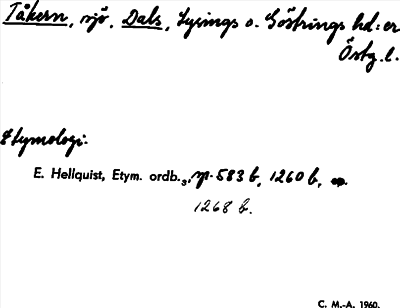 Tåkern, sjö, Dals, Lysings o. Göstrings hd:er
Östg.l.
Etymologi:
E. Hellquist, Etym. ordb.3, sp. 583 b, 1260 b,
1268 b.
C. M.-A. 1960.